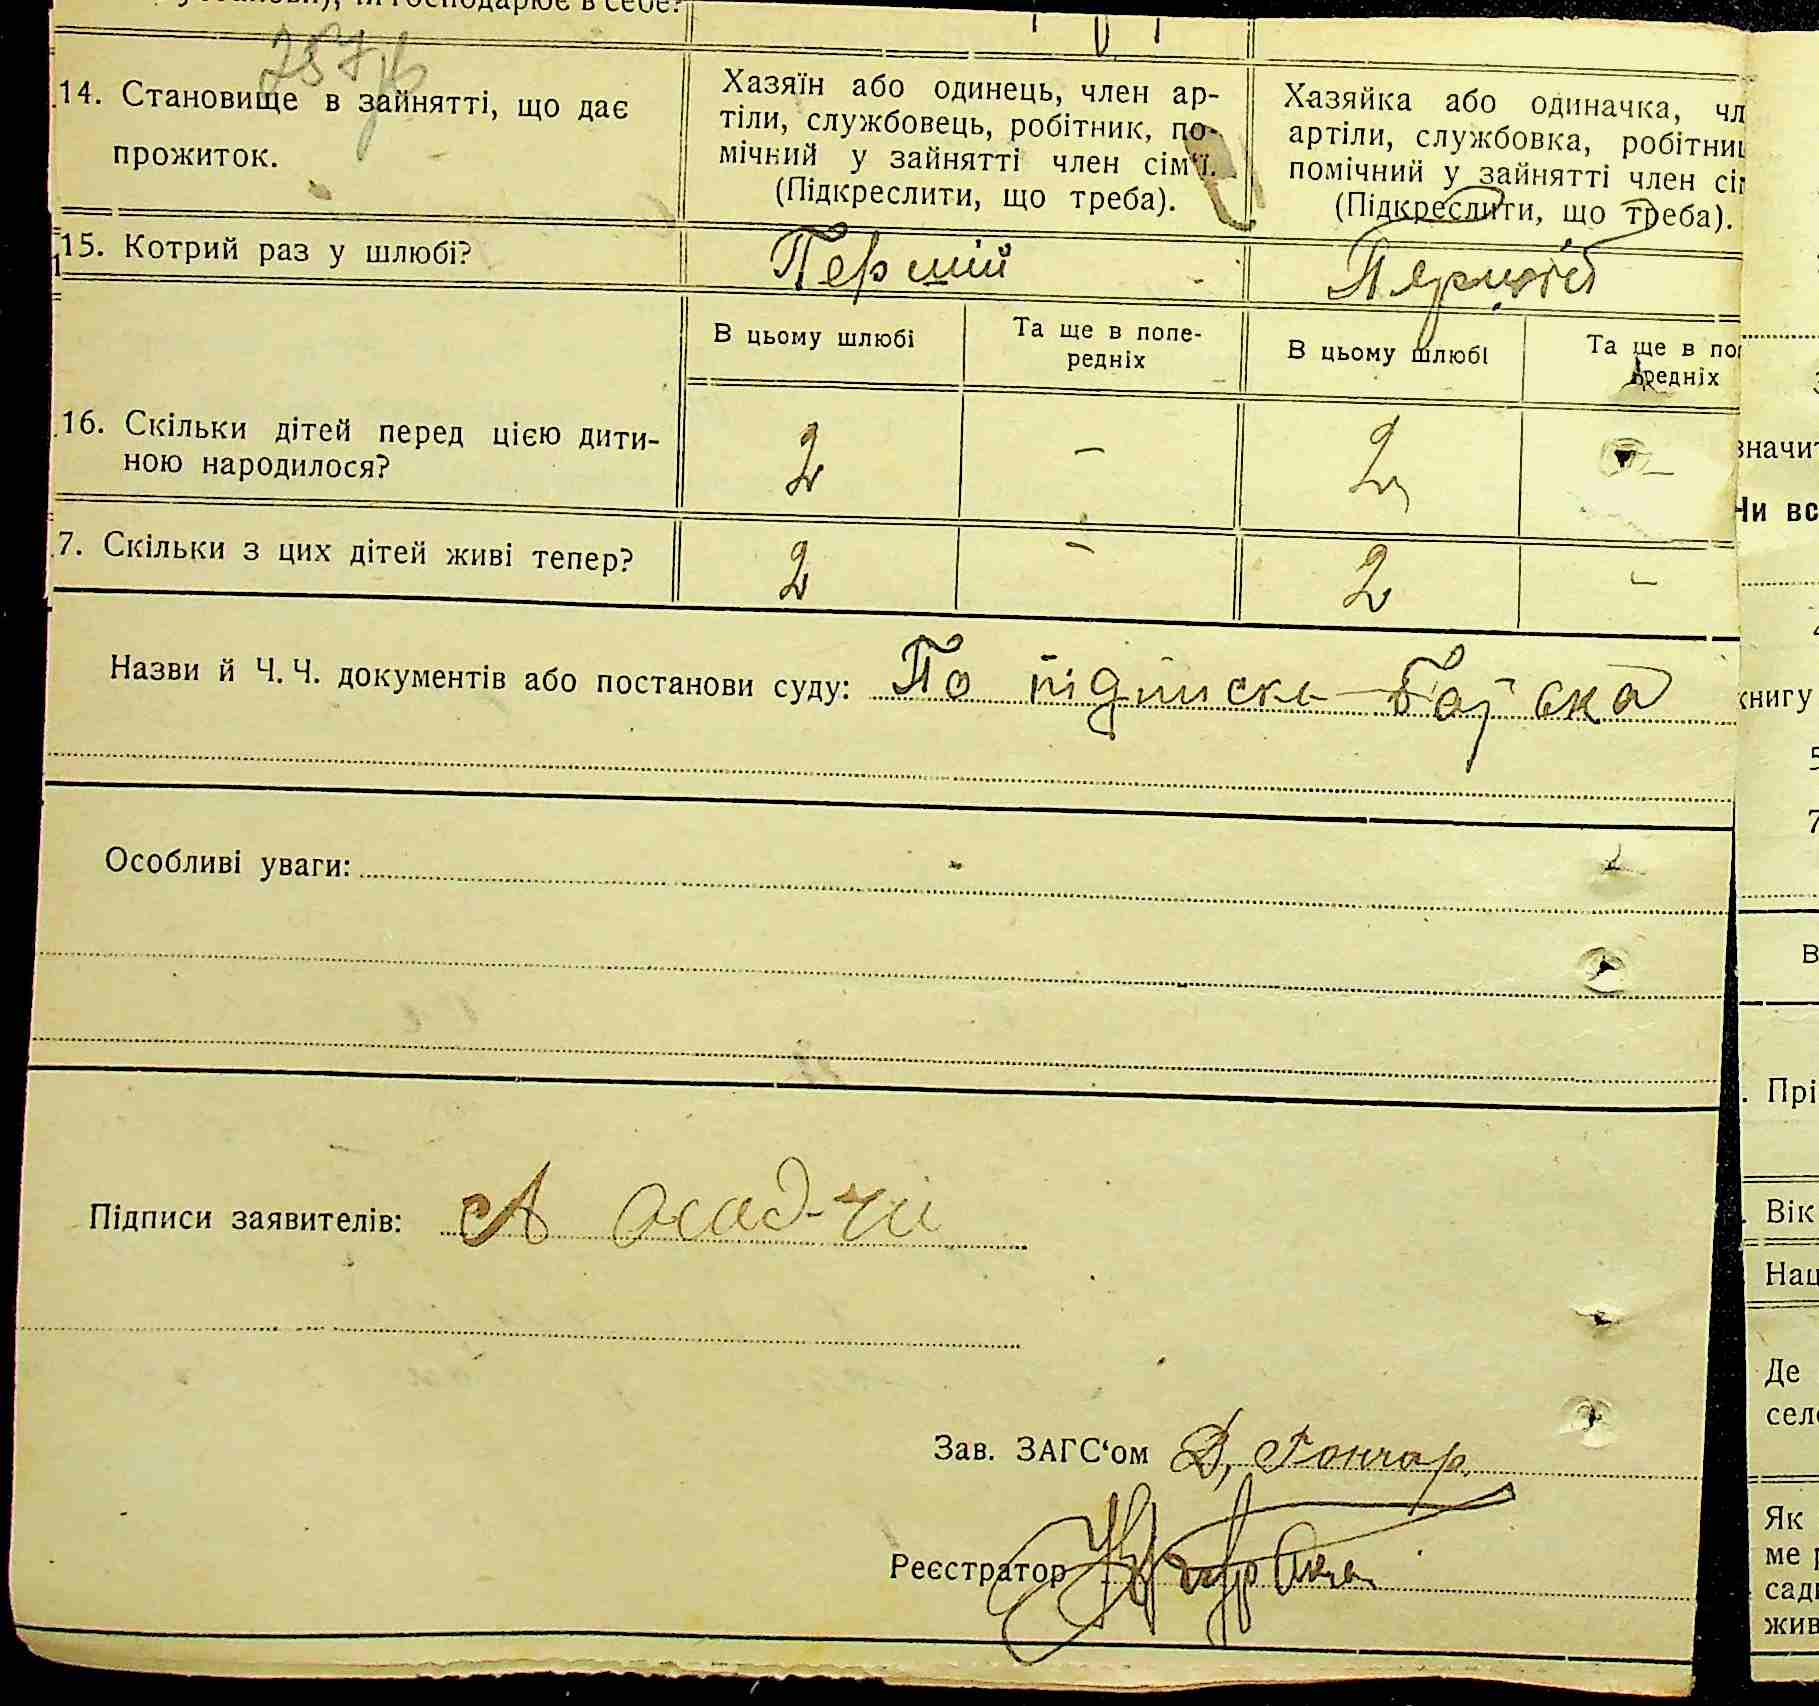 господарює в себе?
14. Становище в зайнятті, що дає
прожиток.
Хазяїн або одинець, член ар-
тіли, службовець, робітник, по-
мічний у зайнятті член сім'ї.
(Підкреслити, що треба).
Хазяйка або одиначка, чл
артіли, службовка, робітни
помічний у зайнятті член сі
(Підкреслити, що треба).
15. Котрий раз у шлюбі?
Перший
В цьому шлюбі
Та ще в попе-
редніх
В цьому шлюбі
Та ще в по
редніх
16. Скільки дітей перед цією дити-
ною народилося?
2 – 2 –
7. Скільки з цих дітей живі тепер?
2 – 2 –
Назви й Ч. Ч. документів або постанови суду: По підписки батька
Особливі уваги: -
Підписи заявителів: А Осадчій
Зав. ЗАГС‘ом Д. Гончар
Реєстратор
значит
Чи вс
книгу
5
7
В
. Прі
Вік
Нац
Де
сел
Як
ме
сад
жив